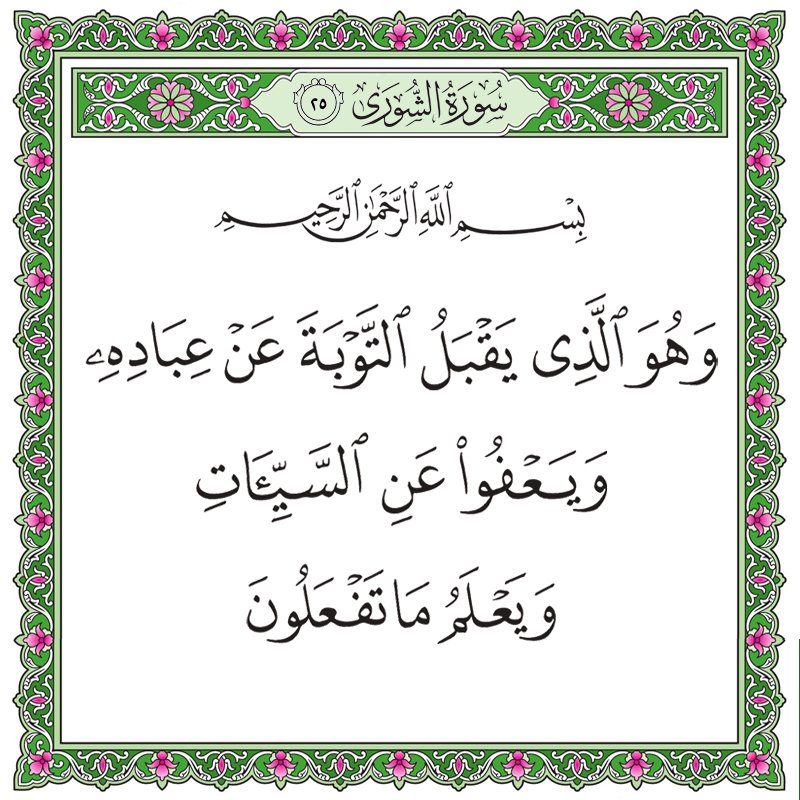 سُورَةُ الشُّورَى ٢٥
بِسْمِ ٱللَّهِ ٱلرَّحْمَٰنِ ٱلرَّحِيمِ
وَهُوَ ٱلَّذِى يَقْبَلُ ٱلتَّوْبَةَ عَنْ عِبَادِهِۦ
وَيَعْفُوا۟ عَنِ ٱلسَّيِّـَٔاتِ
وَيَعْلَمُ مَا تَفْعَلُونَ